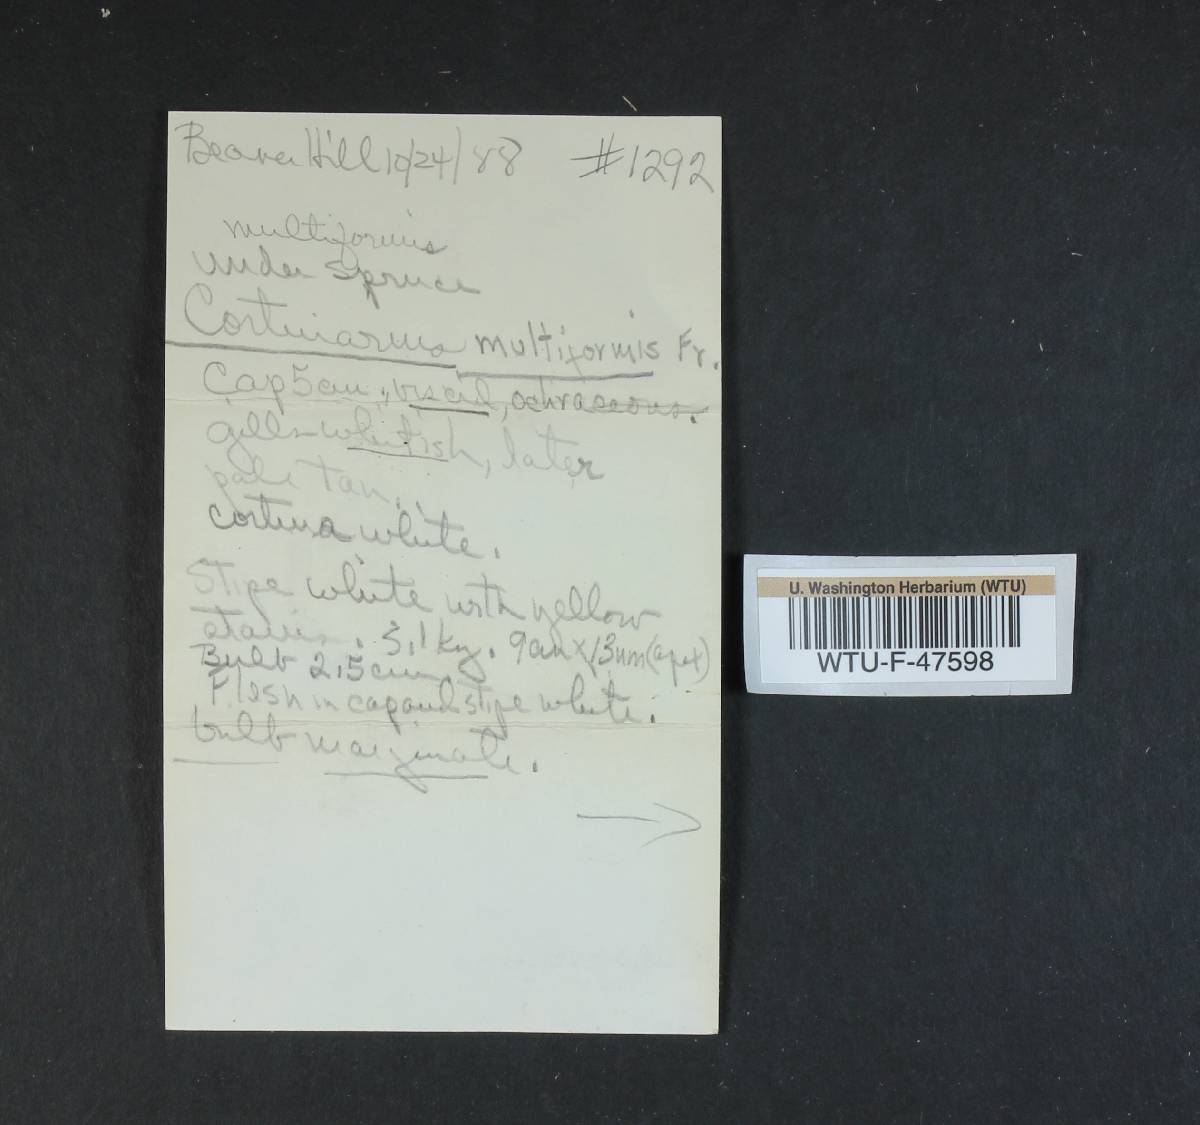 Beaver Hill 10/24/88 #1292
multiformis
Under Spruce
Cortinarius multiformis Fr.
Cap 5cm, viscid, ochraceous.
gills whitish, later
pale tan.
cortina white.
Stipe white with yellow
stains. 9cm x 13mm (apex)
Bulb 2.5cm
Flesh in cap and stipe white.
bulb marginate.
U. Washington Herbarium (WTU)
WTU-F-47598